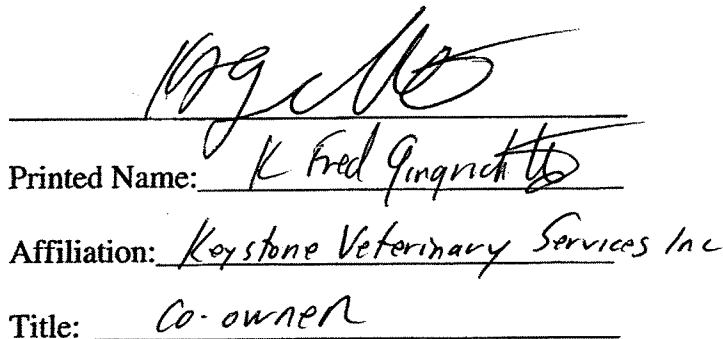 Printed Name: K Fred Gingrich
Affiliation: Keystone Veterinary Services Inc
Title: Co-owner